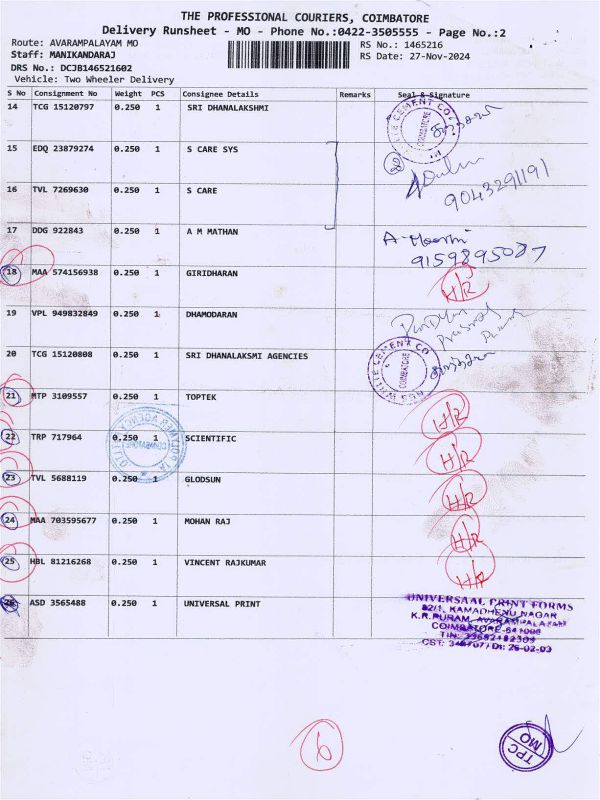 THE PROFESSIONAL COURIERS, COIMBATORE
Delivery Runsheet - MO - Phone No.:0422-3505555 - Page No.:2
Route: AVARAMPALAYAM MO RS No.: 1465216
Staff: MANIKANDARAJ RS Date: 27-Nov-2024
DRS No.: DCJB146521602
Vehicle: Two Wheeler Delivery
S No Consignment No Weight PCS Consignee Details Remarks Seal & Signature
14 TCG 15120797 0.250 1 SRI DHANALAKSHMI
WHITE CEMENT CO
COIMBATORE
15 EDQ 23879274 0.250 1 S CARE SYS
16 TVL 7269630 0.250 1 S CARE
9043291191
17 DDG 922843 0.250 1 A M MATHAN
9159895087
18 MAA 574156938 0.250 1 GIRIDHARAN H/R
19 VPL 949832849 0.250 1 DHAMODARAN
20 TCG 15120808 0.250 1 SRI DHANALAKSMI AGENCIES
WHITE CEMENT CO
COIMBATORE
21 MTP 3109557 0.250 1 TOPTEK H/R
22 TRP 717964 0.250 1 SCIENTIFIC H/R
23 TVL 5688119 0.250 1 GLODSUN H/R
24 MAA 703595677 0.250 1 MOHAN RAJ H/R
25 HBL 81216268 0.250 1 VINCENT RAJKUMAR H/R
26 ASD 3565488 0.250 1 UNIVERSAL PRINT
UNIVERSAAL PRINT FORMS
82/1, KAMADHENU NAGAR
K.R.PURAM, AVARAMPALAYAM
COIMBATORE-641006
6
TPC
MO